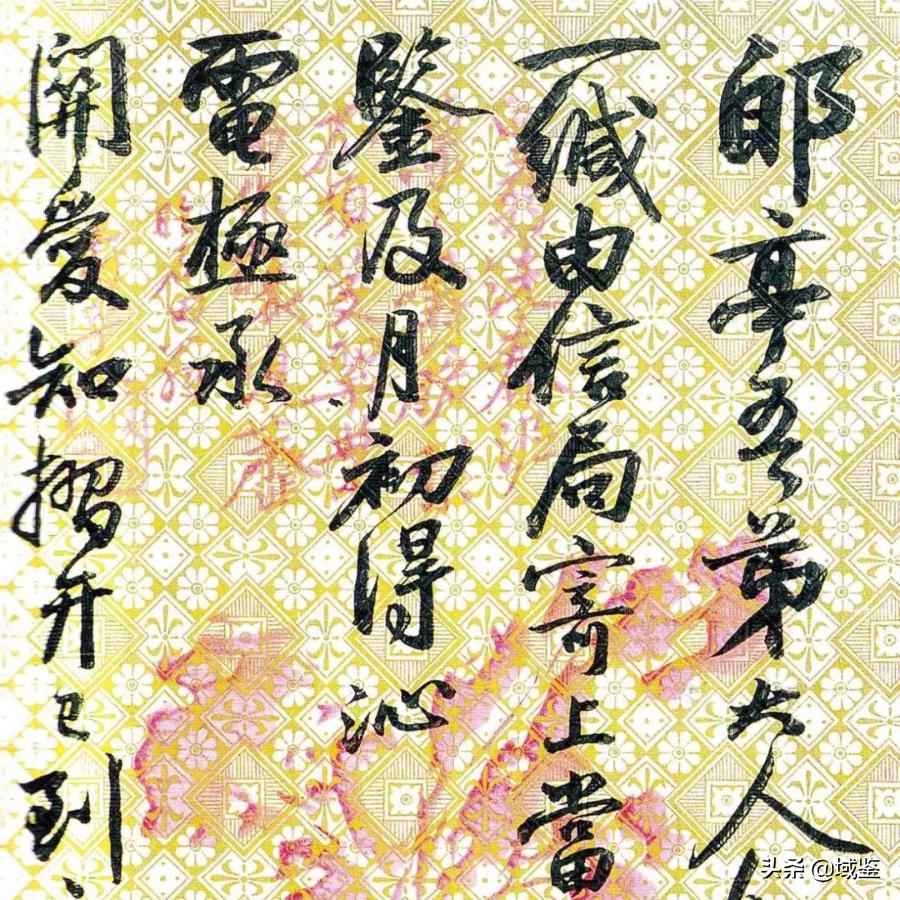 郋亭吾弟大人
一緘由信局寄上當
鑒及月初得沁
電極承
關愛知摺弁已到
头条 @域鉴